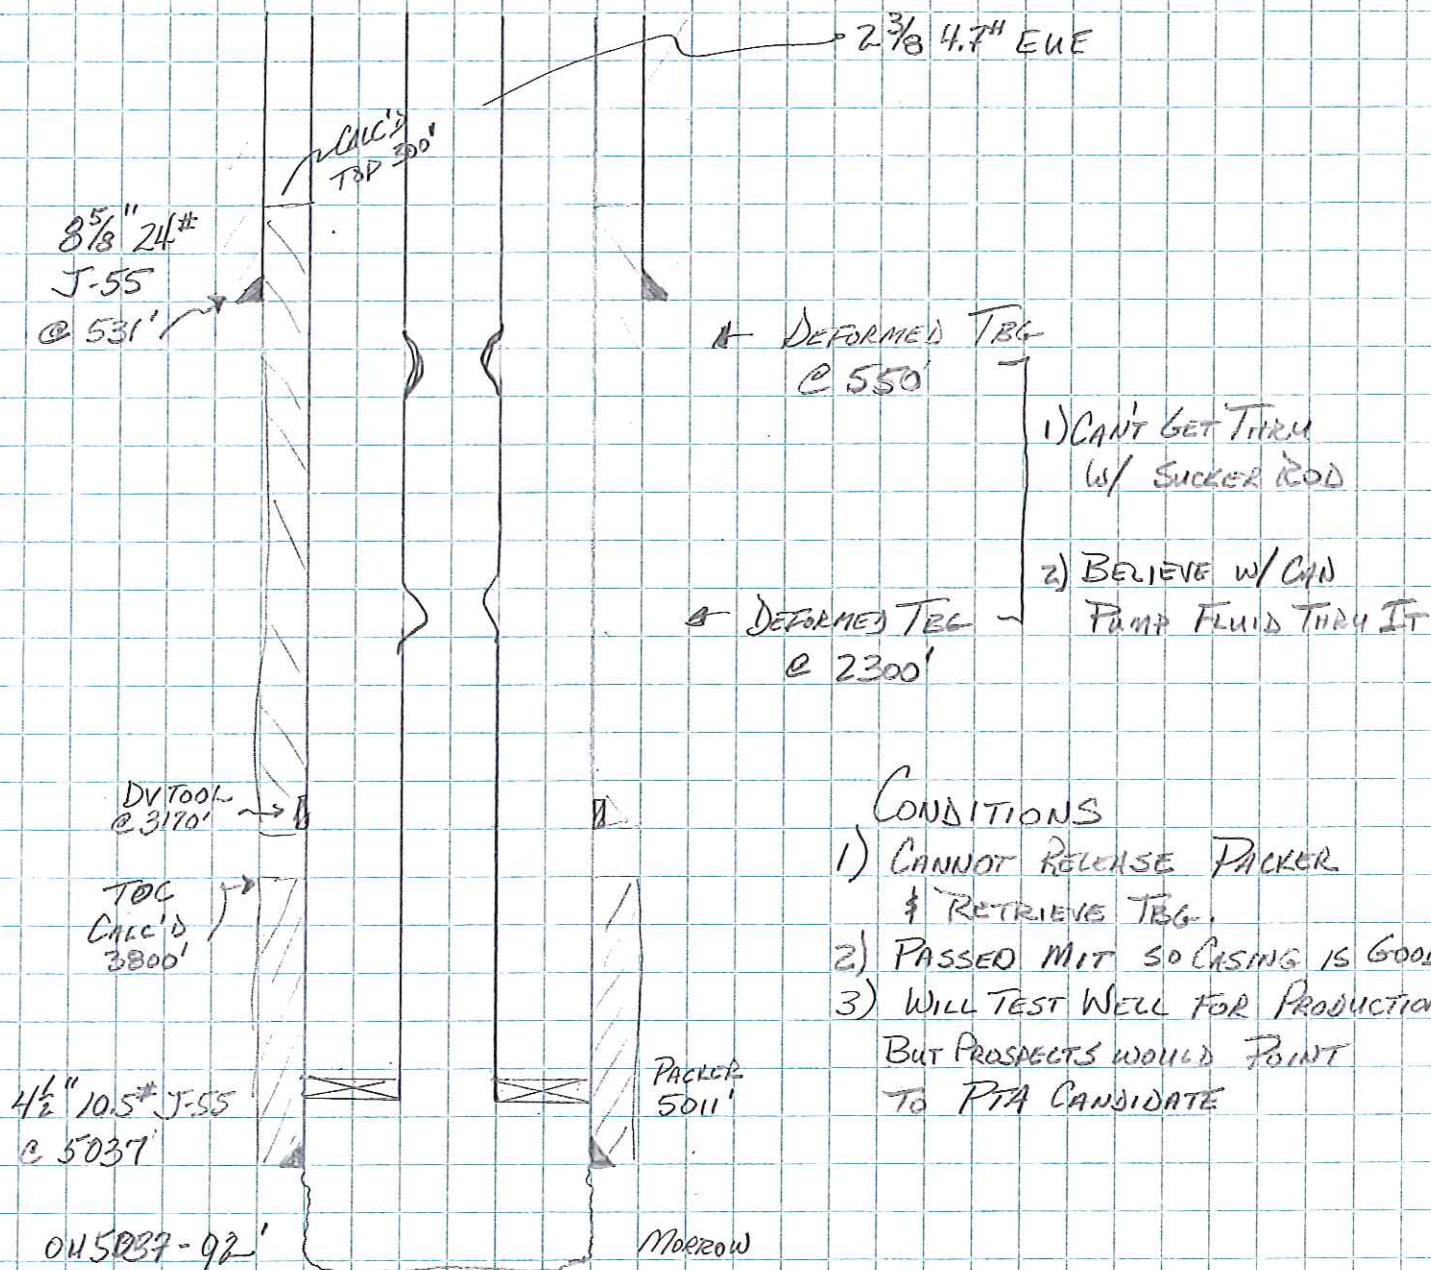 2 3/8 4.7# EUE
CALC'D
TOP 300'
8 5/8" 24#
J-55
@ 531'
DEFORMED TBG
@ 550'
1) CAN'T GET THRU
W/ SUCKER ROD
2) BELIEVE W/ CAN
PUMP FLUID THRU IT
DEFORMED TBG
@ 2300'
DV TOOL
@ 3170'
TOC
CALC'D
3800'
CONDITIONS
1) CANNOT RELEASE PACKER
& RETRIEVE TBG.
2) PASSED MIT SO CASING IS GOOD
3) WILL TEST WELL FOR PRODUCTION
BUT PROSPECTS WOULD POINT
TO PTA CANDIDATE
PACKER
5011'
4 1/2" 10.5# J-55
@ 5037'
OH 5037-92'
MORROW